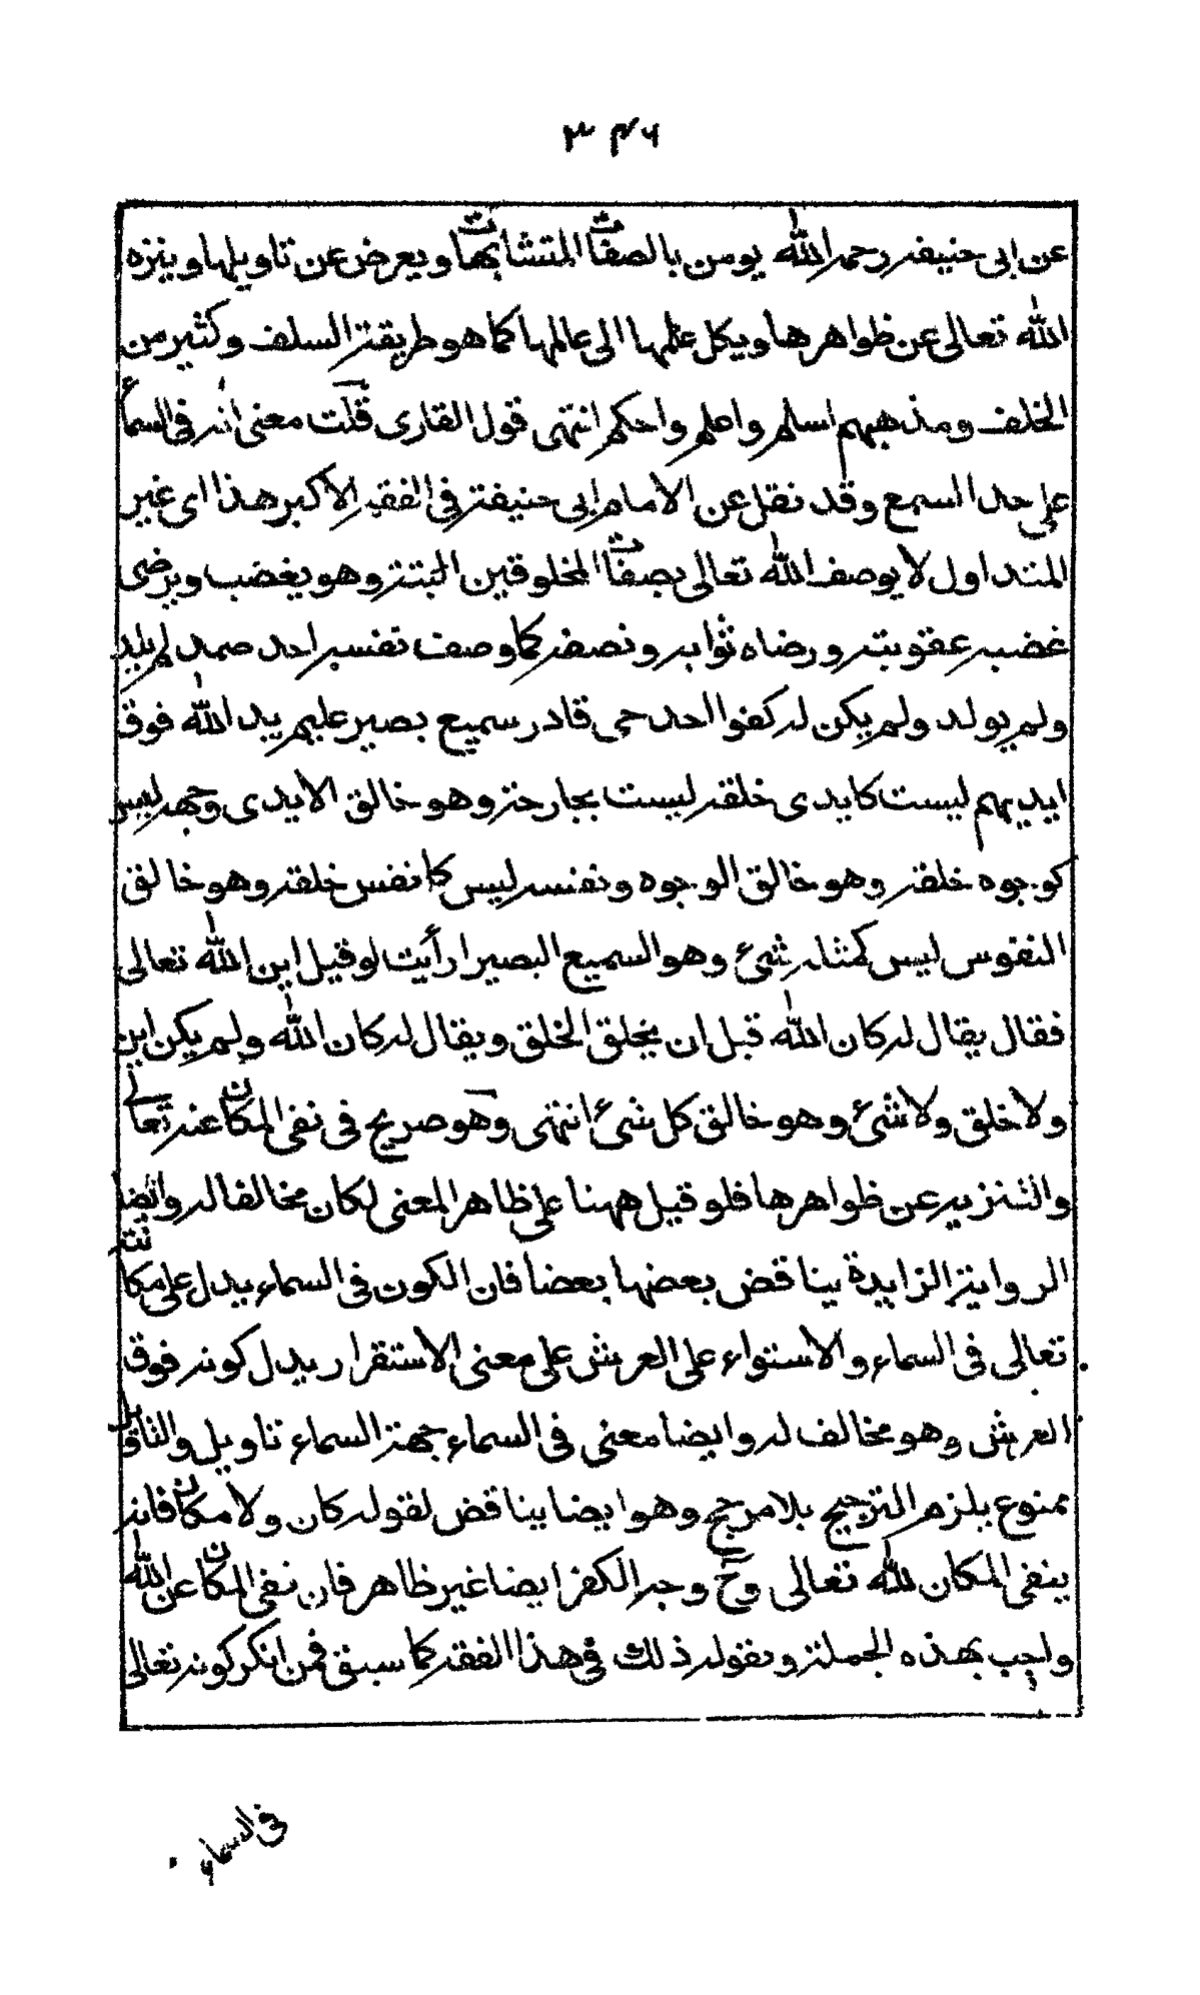 ٣٤٦
عن ابى حنيفه رحمه الله يومن بالصفات المتشابهات ويعرض عن تاويلها وينزه
الله تعالى عن ظواهرها ويكل علمها الى عالمها كما هو طريقة السلف وكثير من
الخلف ومذهبهم اسلم واعلم واحكم انتهى قول القارى قلت معنى انه فى السماء
على حد السمع وقد نقل عن الامام ابى حنيفة فى الفقه الاكبر هذا اى غير
المتداول لا يوصف الله تعالى بصفات المخلوقين البتة وهو يغضب ويرضى
غضبه عقوبته ورضاه ثوابه ونصفه كما وصف نفسه احد صمد لم يلد
ولم يولد ولم يكن له كفوا احد حى قادر سميع بصير عليم يد الله فوق
ايديهم ليست كايدى خلقه ليست بجارحة وهو خالق الايدى وجهه ليس
كوجوه خلقه وهو خالق الوجوه ونفسه ليس كانفس خلقه وهو خالق
النفوس ليس كمثله شئ وهو السميع البصير ارأيت لو قيل اين الله تعالى
فقال يقال له كان الله قبل ان يخلق الخلق ويقال له كان الله ولم يكن اين
ولا خلق ولا شئ وهو خالق كل شئ انتهى وهو صريح فى نفى المكان عنه تعالى
والتنزيه عن ظواهرها فلو قيل ههنا على ظاهر المعنى لكان مخالفا له وايضا
الرواية الزايدة يناقض بعضها بعضا فان الكون فى السماء يدل على مكانته
تعالى فى السماء والاستواء على العرش على معنى الاستقرار يدل كونه فوق
العرش وهو مخالف له وايضا معنى فى السماء جهة السماء تاويل والتاويل
ممنوع يلزم الترجيح بلا مرجح وهو ايضا يناقض لقوله كان ولا مكان فانه
ينفى المكان لله تعالى وح وجه الكفر ايضا غير ظاهر فان نفى المكان عن الله
واجب بهذه الجملة وبقوله ذلك فى هذا الفقه كما سبق فمن انكر كونه تعالى
فى السماء